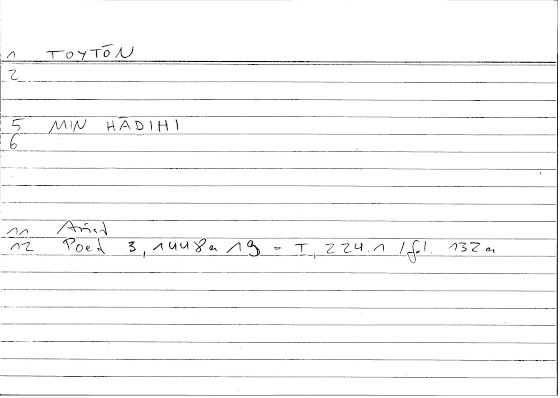 1 TOYTŌN
2
5 MIN HĀDIHI
6
11 Arist
12 Poet 3, 1448a 19 = T, 224.1 / fl. 132a